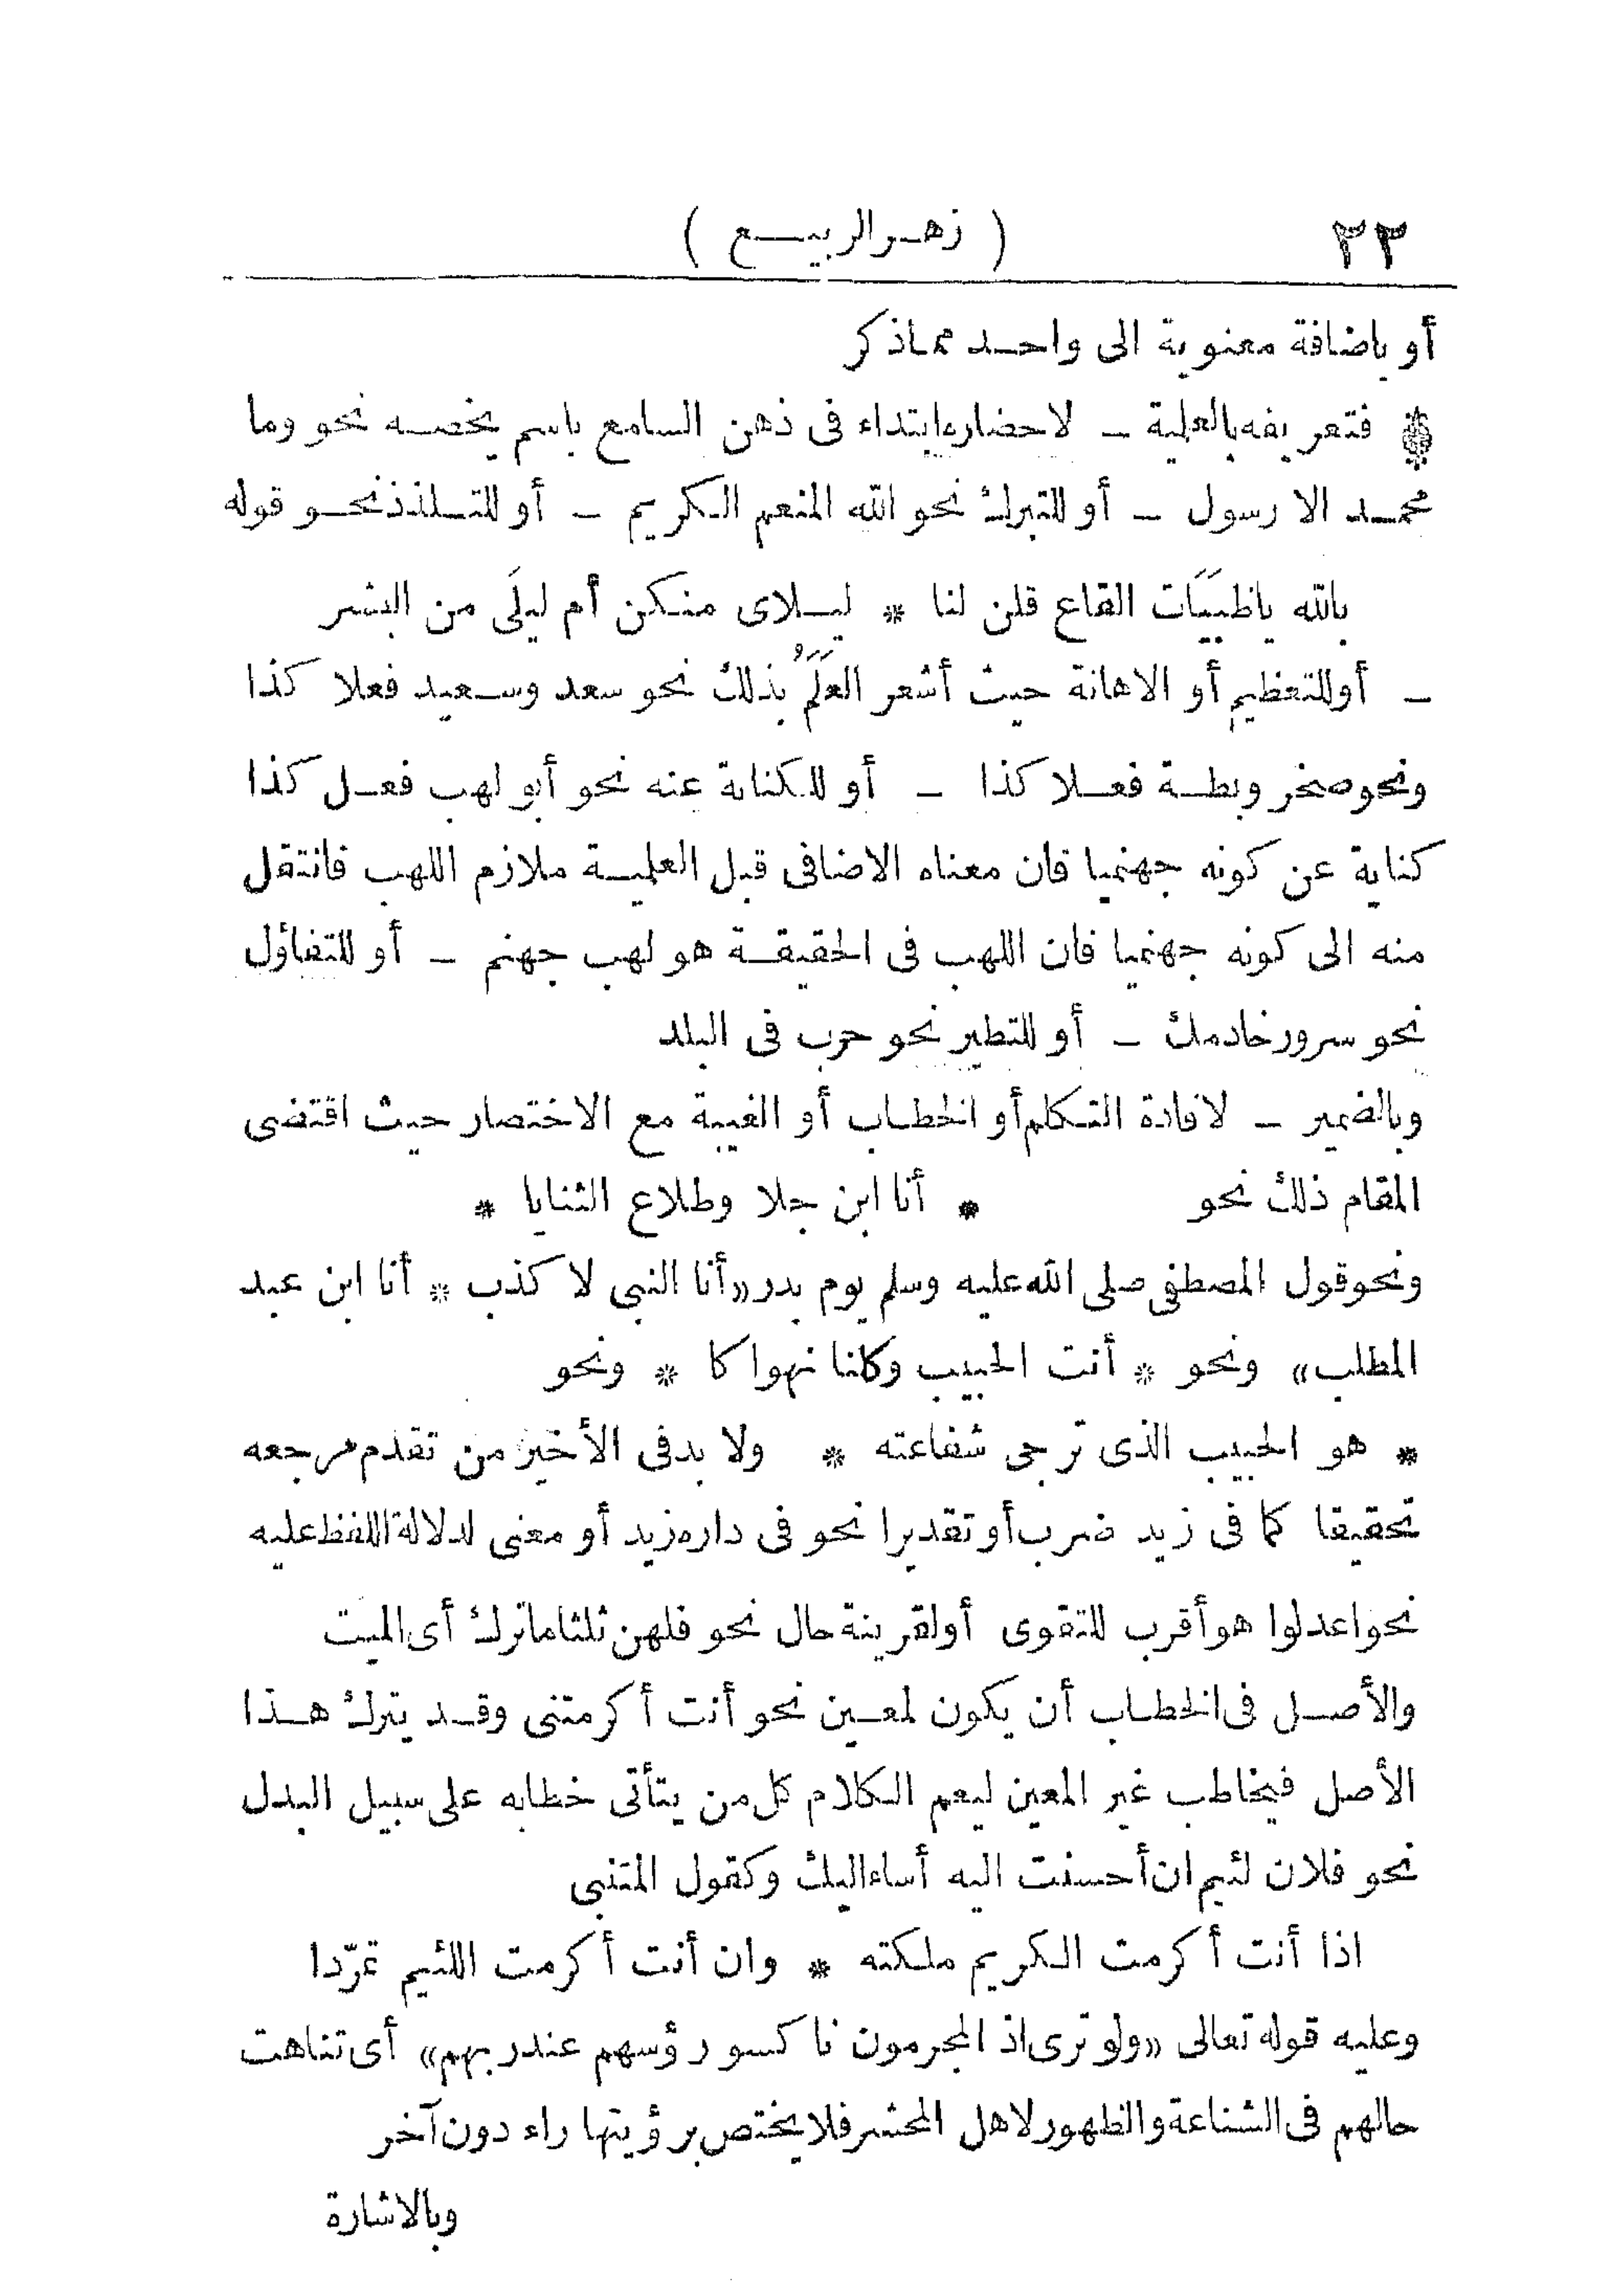 ٢٢ ( زهر الربيع )
أو باضافة معنوية الى واحد مماذكر
فتعريفه بالعلمية – لاحضاره ابتداء فى ذهن السامع باسم يخصه نحو وما
محمد الا رسول – أو للتبرك نحو الله المنعم الكريم – أو للتلذذ نحو قوله
بالله ياظبيَات القاع قلن لنا * ليلاى منكن أم ليلَى من البشر
– أو للتعظيم أو الاهانة حيث أشعر العَلَمُ بذلك نحو سعد وسعيد فعلا كذا
ونحو صخر وبطة فعلا كذا – أو للكناية عنه نحو أبو لهب فعل كذا
كناية عن كونه جهنميا فان معناه الاضافى قبل العلمية ملازم اللهب فانتقل
منه الى كونه جهنميا فان اللهب فى الحقيقة هو لهب جهنم – أو للتفاؤل
نحو سرور خادمك – أو للتطير نحو حرب فى البلد
وبالضمير – لافادة التكلم أو الخطاب أو الغيبة مع الاختصار حيث اقتضى
المقام ذلك نحو * أنا ابن جلا وطلاع الثنايا *
ونحو قول المصطفى صلى الله عليه وسلم يوم بدر «أنا النبى لا كذب * أنا ابن عبد
المطلب» ونحو * أنت الحبيب وكلنا نهواكا * ونحو
* هو الحبيب الذى ترجى شفاعته * ولا بد فى الأخير من تقدم مرجعه
تحقيقا كما فى زيد ضرب أو تقديرا نحو فى داره زيد أو معنى لدلالة اللفظ عليه
نحو اعدلوا هو أقرب للتقوى أو لقرينة حال نحو فلهن ثلثا ماترك أى الميت
والأصل فى الخطاب أن يكون لمعين نحو أنت أكرمتنى وقد يترك هذا
الأصل فيخاطب غير المعين ليعم الكلام كل من يتأتى خطابه على سبيل البدل
نحو فلان لئيم ان أحسنت اليه أساء اليك وكقول المتنبى
اذا أنت أكرمت الكريم ملكته * وان أنت أكرمت اللئيم تمرّدا
وعليه قوله تعالى «ولو ترى اذ المجرمون ناكسو رؤسهم عند ربهم» أى تناهت
حالهم فى الشناعة والظهور لاهل المحشر فلا يختص برؤيتها راء دون آخر
وبالاشارة